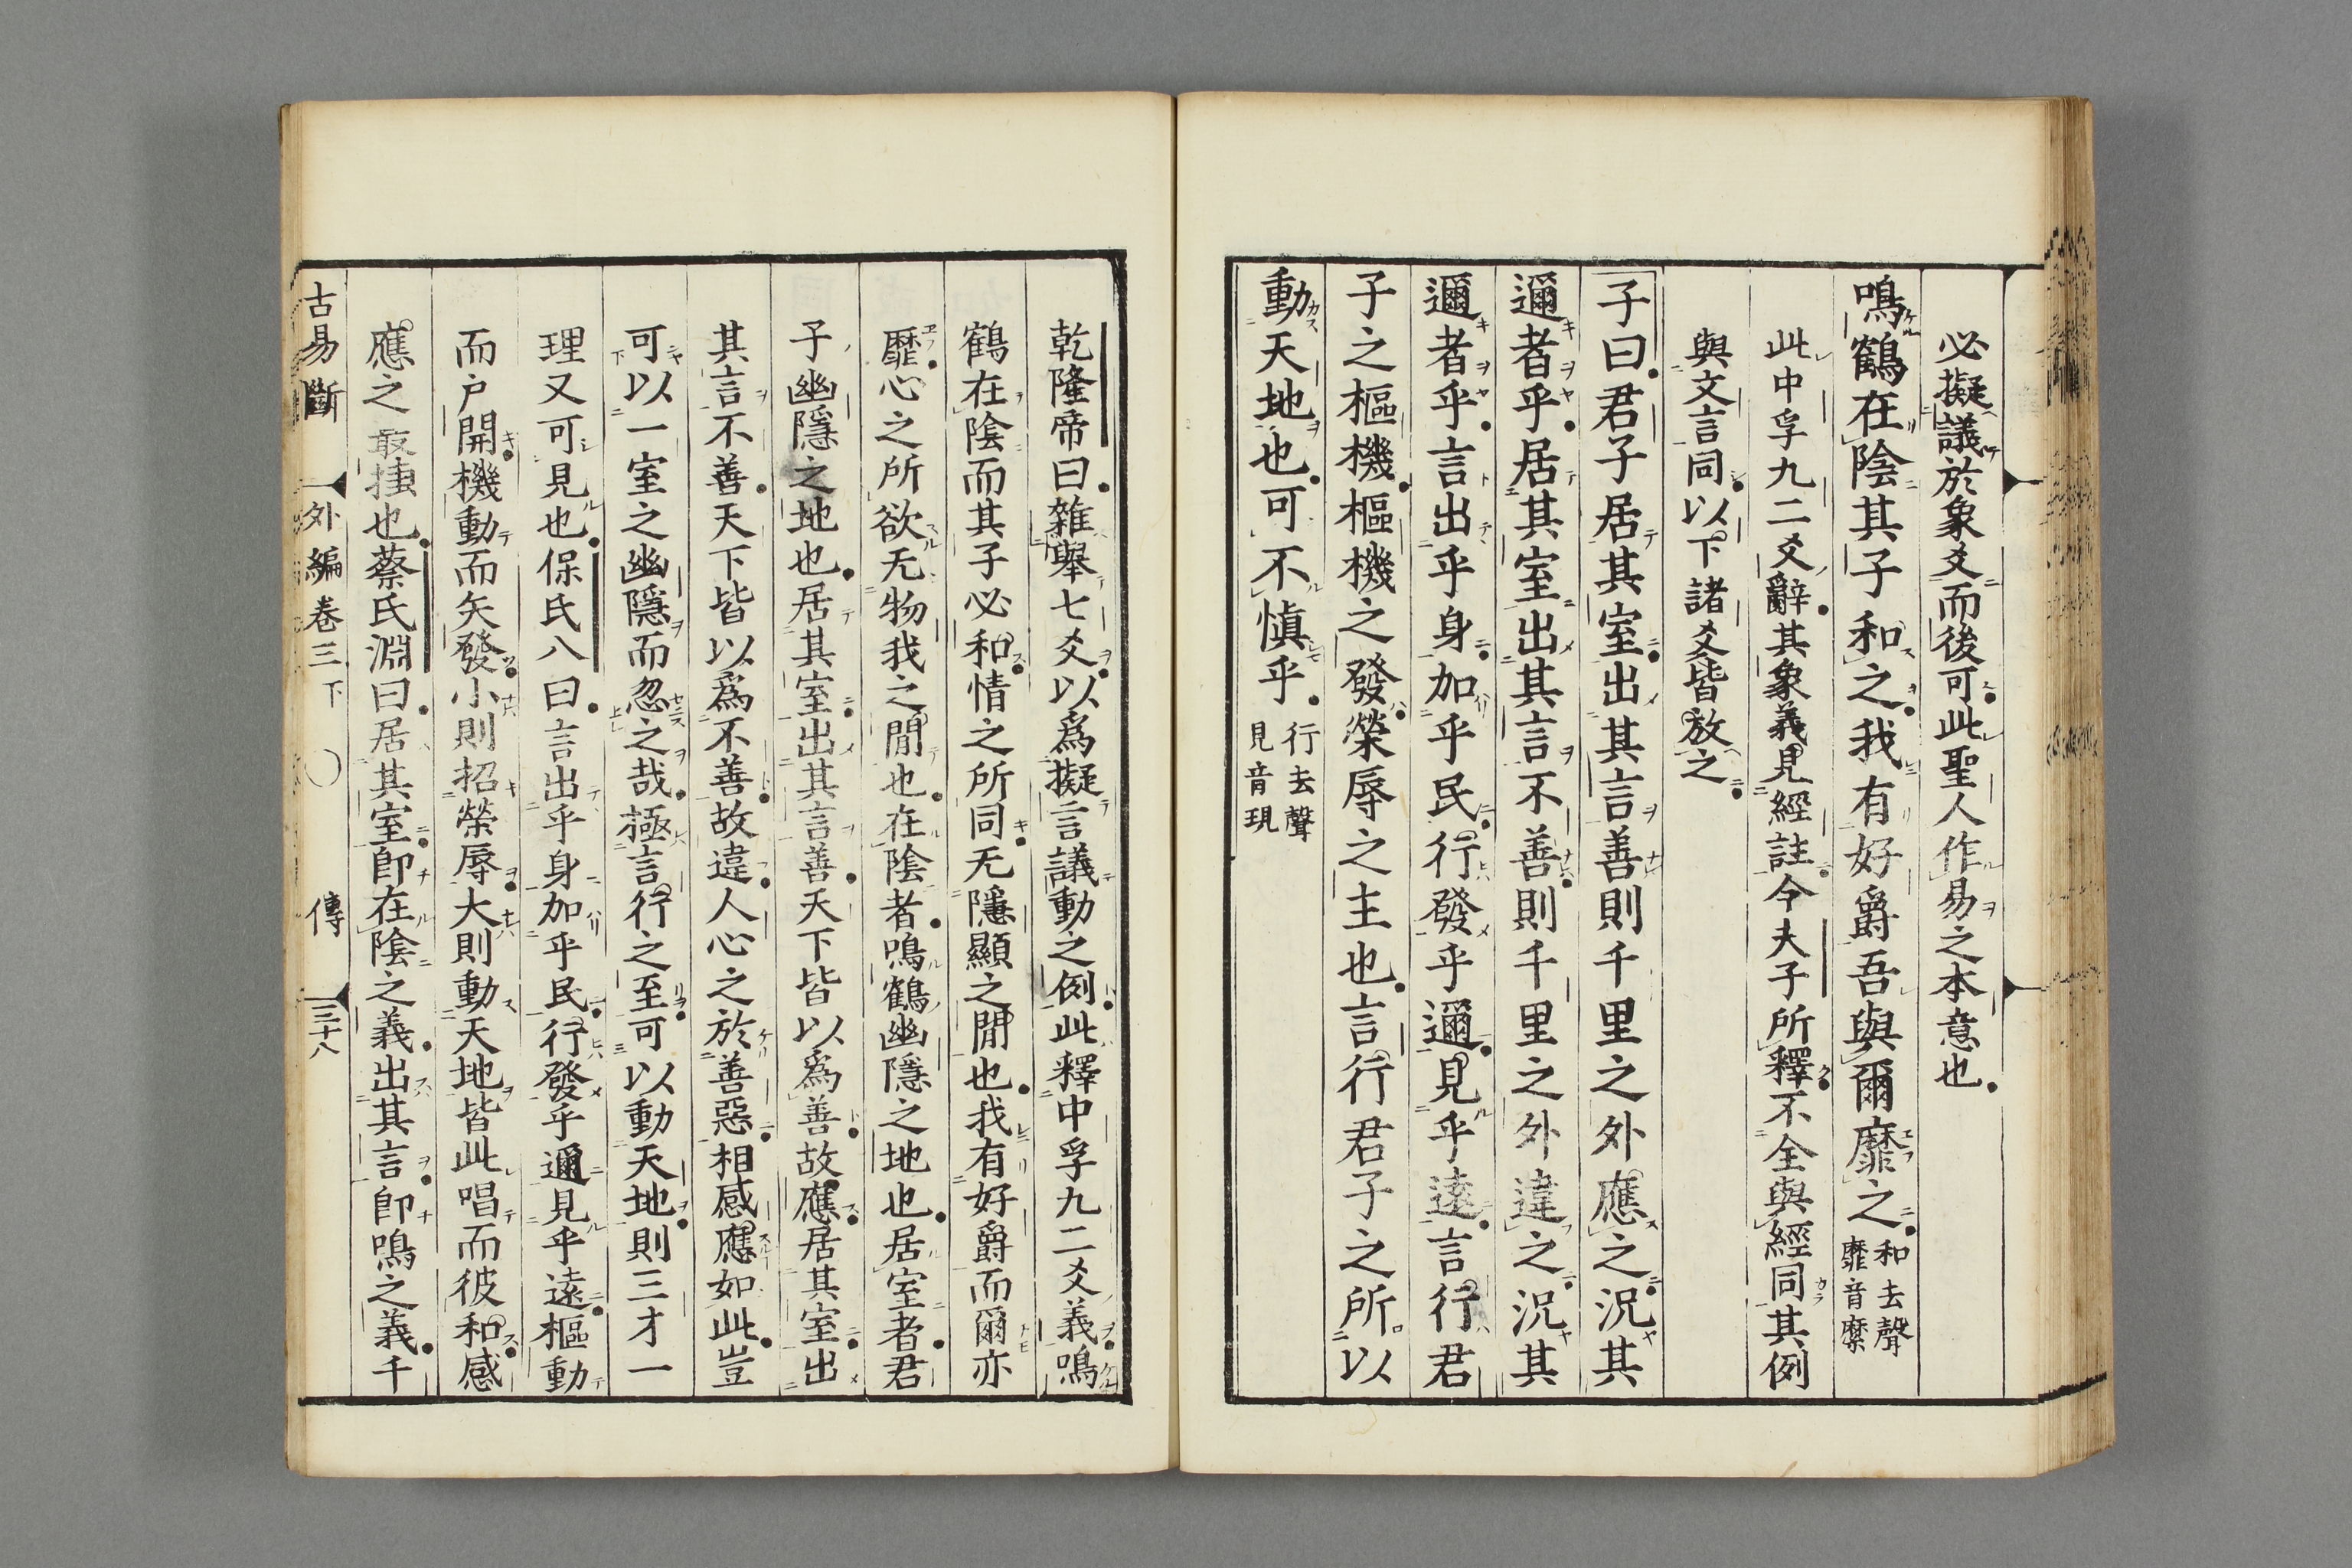 必擬議於象爻而後可此聖人作易之本意也
鳴鶴在陰其子和之我有好爵吾與爾靡之 和去聲 靡音縻
此中孚九二爻辭其象義見經註今夫子所釋不全與經同其例
與文言同以下諸爻皆放之
子曰君子居其室出其言善則千里之外應之況其
邇者乎居其室出其言不善則千里之外違之況其
邇者乎言出乎身加乎民行發乎邇見乎遠言行君
子之樞機樞機之發榮辱之主也言行君子之所以
動天地也可不慎乎 行去聲 見音現
乾隆帝曰雜舉七爻以爲擬言議動之例此釋中孚九二爻義鳴
鶴在陰而其子必和情之所同无隱顯之閒也我有好爵而爾亦
靡心之所欲无物我之閒也在陰者鳴鶴幽隱之地也居室者君
子幽隱之地也居其室出其言善天下皆以爲善故應居其室出
其言不善天下皆以爲不善故違人心之於善惡相感應如此豈
可以一室之幽隱而忽之哉極言行之至可以動天地則三才一
理又可見也保氏八曰言出乎身加乎民行發乎邇見乎遠樞動
而戶開機動而矢發小則招榮辱大則動天地皆此唱而彼和感
應之最捷也蔡氏淵曰居其室卽在陰之義出其言卽鳴之義千
古易斷 外編卷三下 〇 傳 三十八